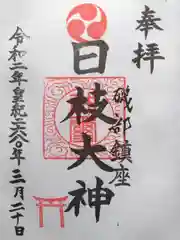 奉拝
磯部鎮座
日枝大神
令和二年皇紀二六八〇年三月二十日